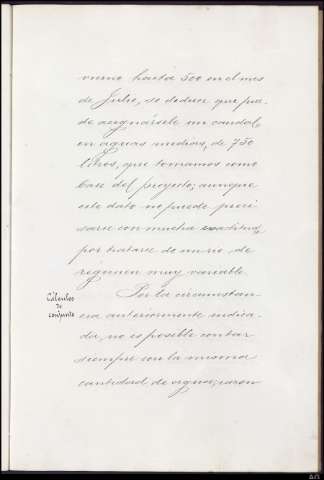 viembre hasta 500 en el mes
de Julio, se deduce que pue-
de asignársele un caudal,
en aguas medias, de 750
litros, que tomamos como
base del proyecto; aunque
este dato no puede preci-
sarse con mucha exactitud,
por tratarse de un rio de
régimen muy variable.
Cálculos
de
conjunto
Por la circunstan-
cia anteriormente indica-
da, no es posible contar
siempre con la misma
cantidad de agua;